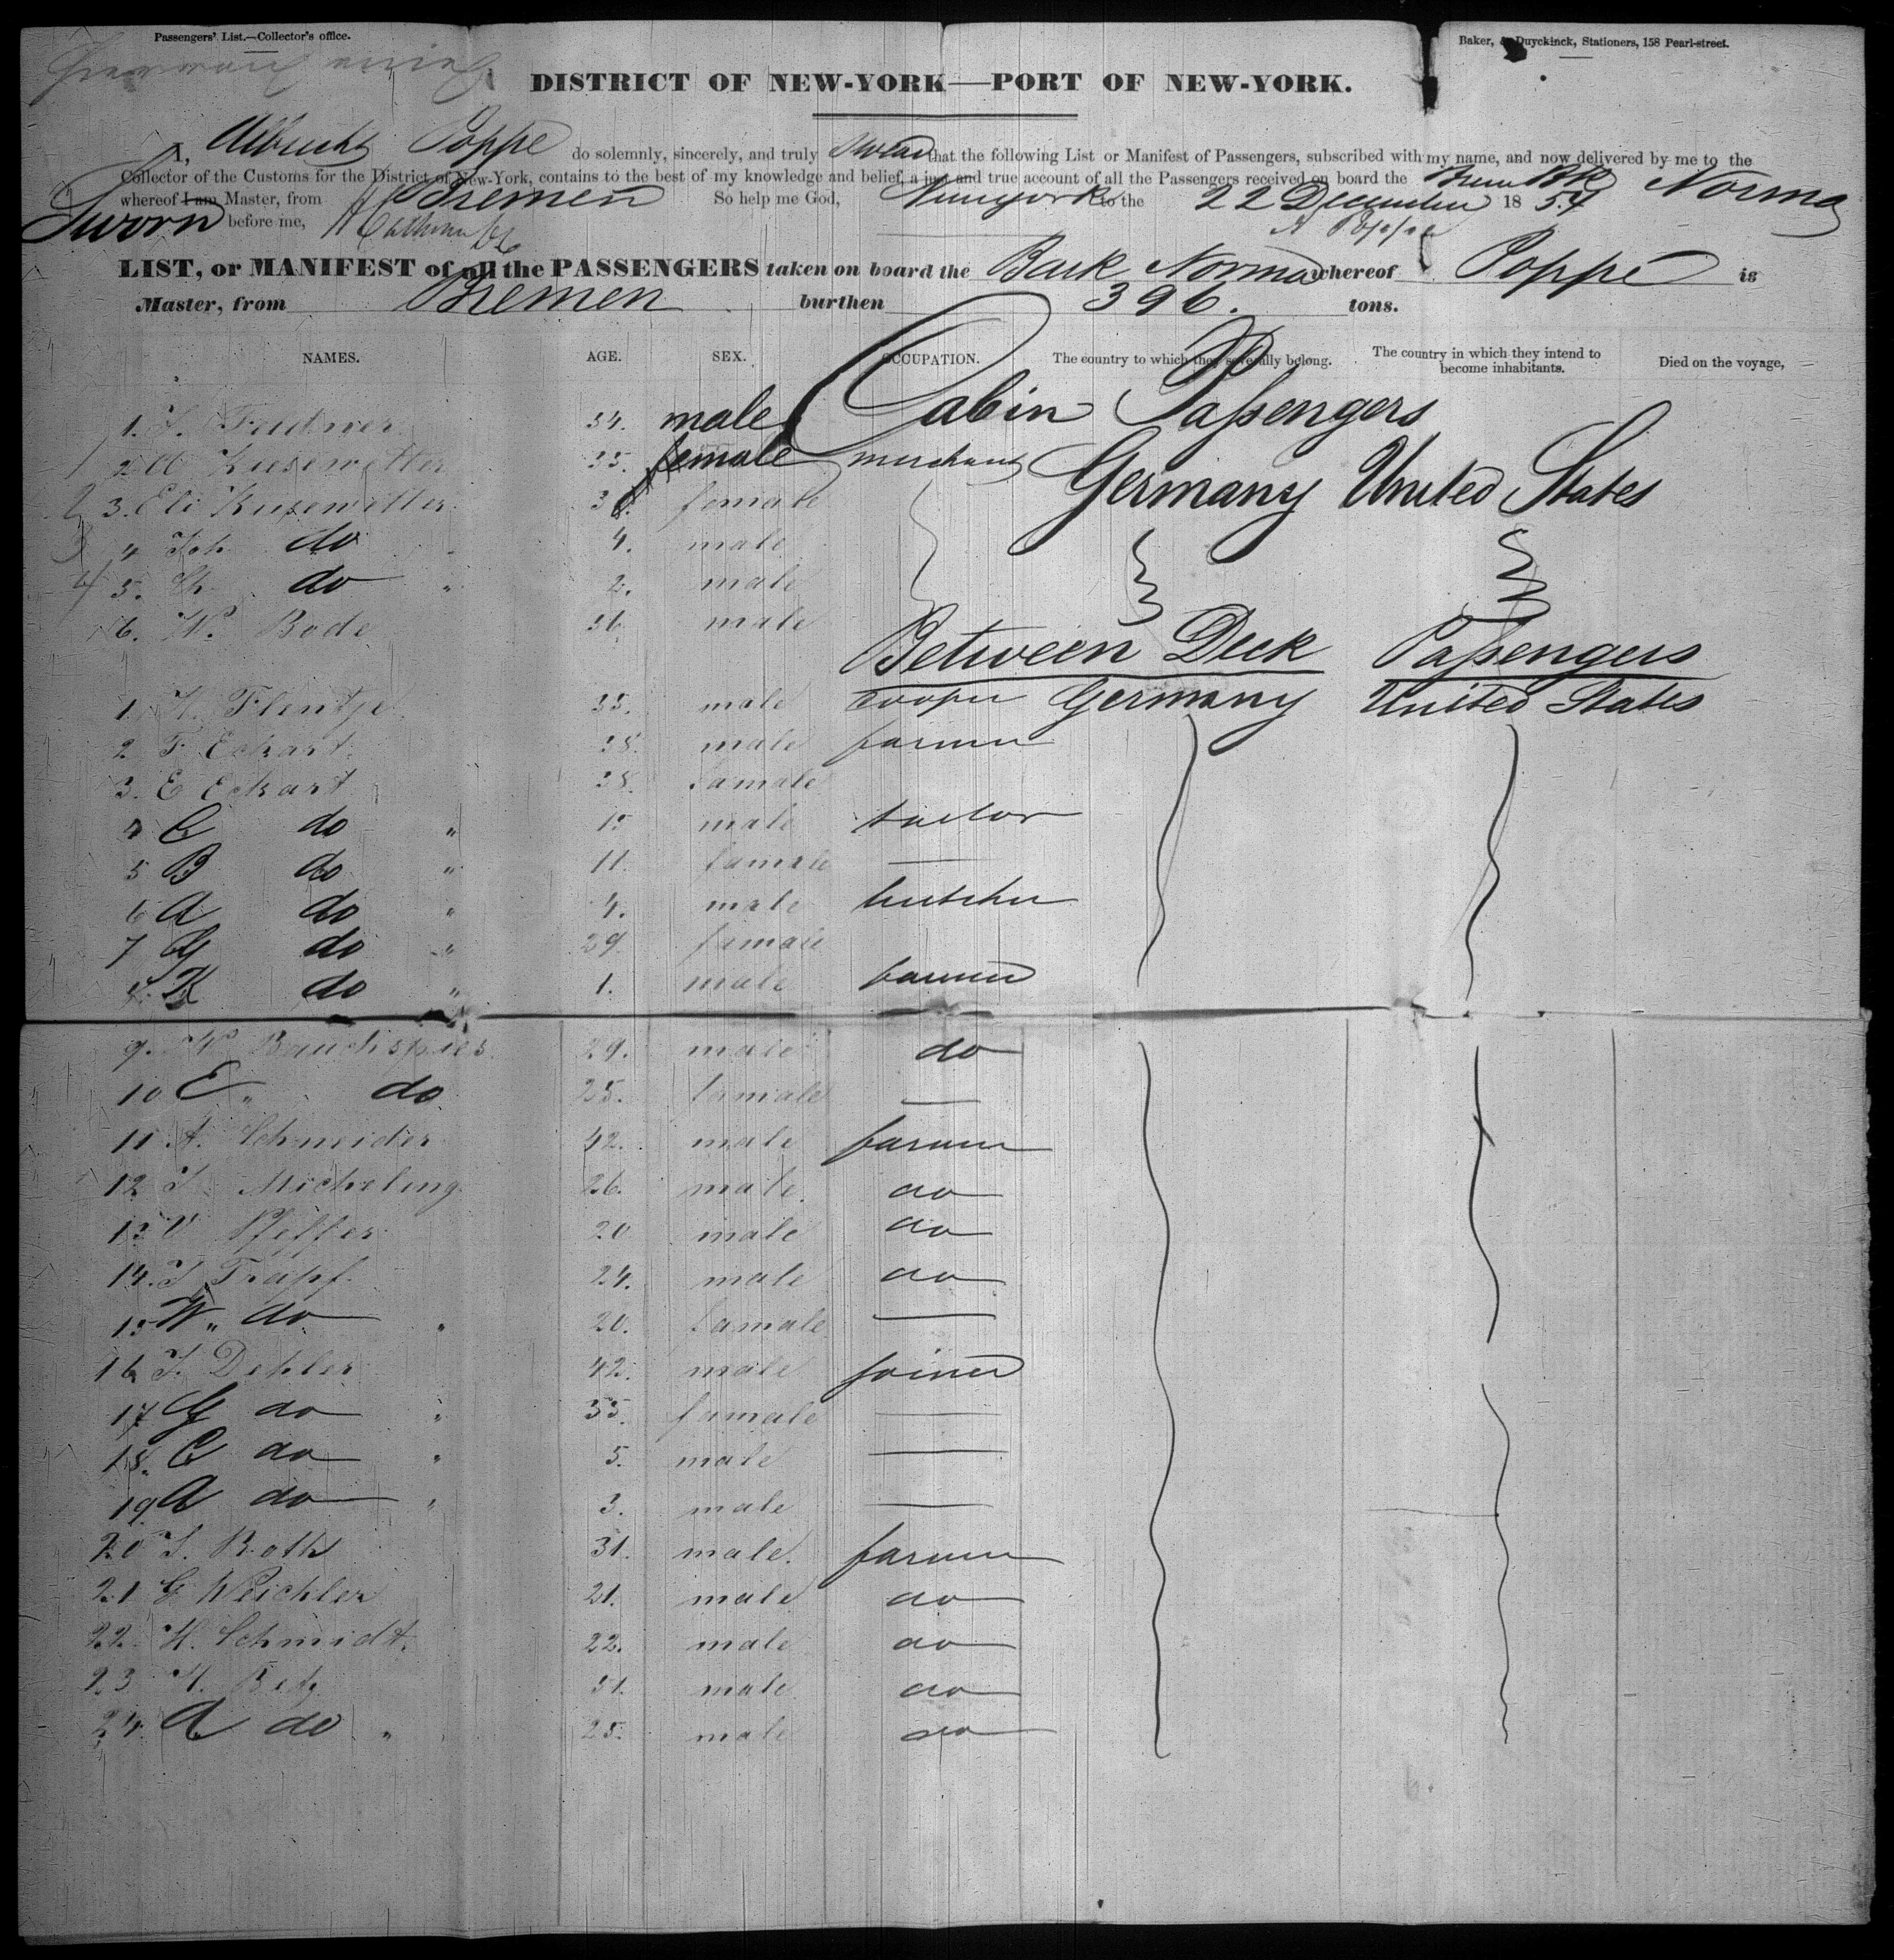 Passengers' List.—Collector's office.
Baker, & Duyckinck, Stationers, 158 Pearl-street.
DISTRICT OF NEW-YORK—PORT OF NEW-YORK.
I, Albrecht Poppe do solemnly, sincerely, and truly swear that the following List or Manifest of Passengers, subscribed with my name, and now delivered by me to the
Collector of the Customs for the District of New-York, contains to the best of my knowledge and belief, a just and true account of all the Passengers received on board the Brem Bk Norma
whereof I am Master, from Bremen So help me God, Newyork to the 22 December 1854
Sworn before me, A Poppe
LIST, or MANIFEST of all the PASSENGERS taken on board the Bark Norma whereof Poppe is
Master, from Bremen burthen 396. tons.
NAMES. AGE. SEX. OCCUPATION. The country to which they severally belong. The country in which they intend to become inhabitants. Died on the voyage,
Cabin Passengers
1. 34. male
2 Kiesewetter 35. female merchant Germany United States
3. Eli Kiesewetter 3 female
4 Joh do 4. male
5. Ch. do " 2. male
6. W. Bode 36 male
Between Deck Passengers
1. H. Flentje 35. male cooper Germany United States
2 F. Eckart 38. male farmer
3. E Eckart 38. famale
4 C do " 15 male tailor
5 B do " 11. famale —
6 A do " 4. male butcher
7 G do " 29. famale
8. K do " 1. male farmer
9. W Bauchspies 29. male do
10 E " do 25. famale —
11 A. Schneider 42. male farmer
12 J Micheling 26. male. do
13 V Pfeffer 20 male do
14. J Trapf. 24. male do
15 W " do " 20. famale —
16 J. Dehler 42. male joiner
17 G do " 35. famale —
18. C do " 5. male —
19 A do " 3. male —
20 J. Roth 31. male. farmer
21 G Weichler 21. male do
22. H. Schmidt. 22. male do
23 H. Betz 31. male do
24. A do " 25. male do